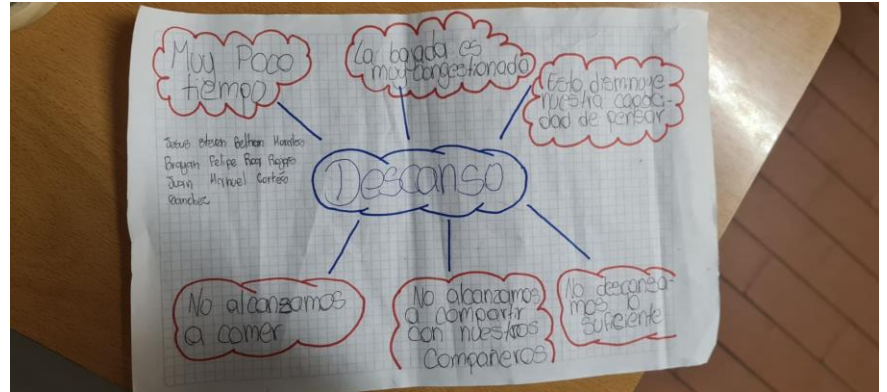 Muy Poco
tiempo
La bajada es
muy congestionado
Esto disminuye
nuestra capaci-
dad de pensar
Jesus Steven Beltran
Brayan Felipe Rojas
Juan Manuel Cortés
Sanchez
Descanso
No alcanzamos
a comer
No alcanzamos
a compartir
con nuestros
Compañeros
No descansa-
mos lo
suficiente